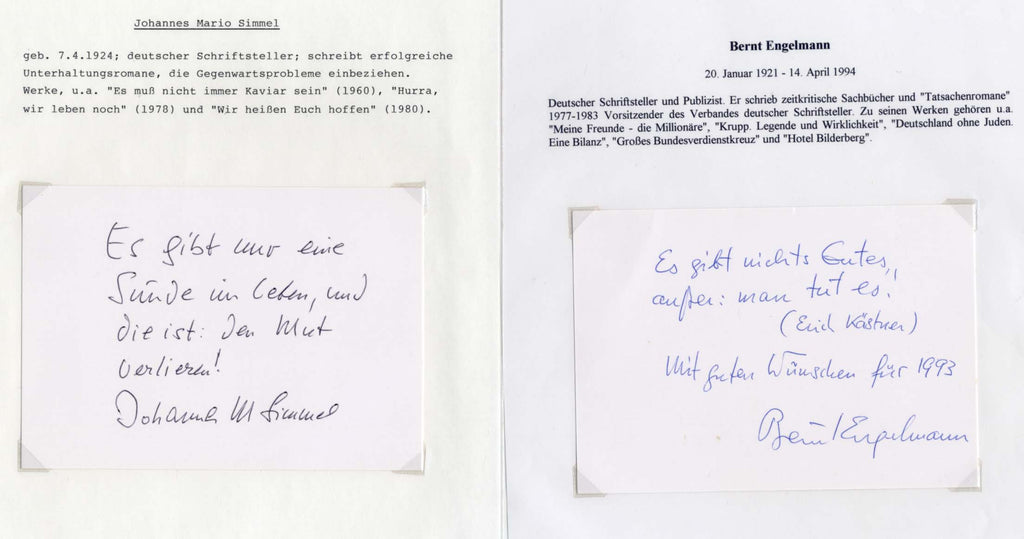 Johannes Mario Simmel
geb. 7.4.1924; deutscher Schriftsteller; schreibt erfolgreiche
Unterhaltungsromane, die Gegenwartsprobleme einbeziehen.
Werke, u.a. "Es muß nicht immer Kaviar sein" (1960), "Hurra,
wir leben noch" (1978) und "Wir heißen Euch hoffen" (1980).
Es gibt nur eine
Sünde im Leben, und
die ist: Den Mut
verlieren!
Johannes M Simmel
Bernt Engelmann
20. Januar 1921 - 14. April 1994
Deutscher Schriftsteller und Publizist. Er schrieb zeitkritische Sachbücher und "Tatsachenromane"
1977-1983 Vorsitzender des Verbandes deutscher Schriftsteller. Zu seinen Werken gehören u.a.
"Meine Freunde - die Millionäre", "Krupp. Legende und Wirklichkeit", "Deutschland ohne Juden.
Eine Bilanz", "Großes Bundesverdienstkreuz" und "Hotel Bilderberg".
Es gibt nichts Gutes,
außer: man tut es!"
(Erich Kästner)
Mit guten Wünschen für 1993
Bernt Engelmann